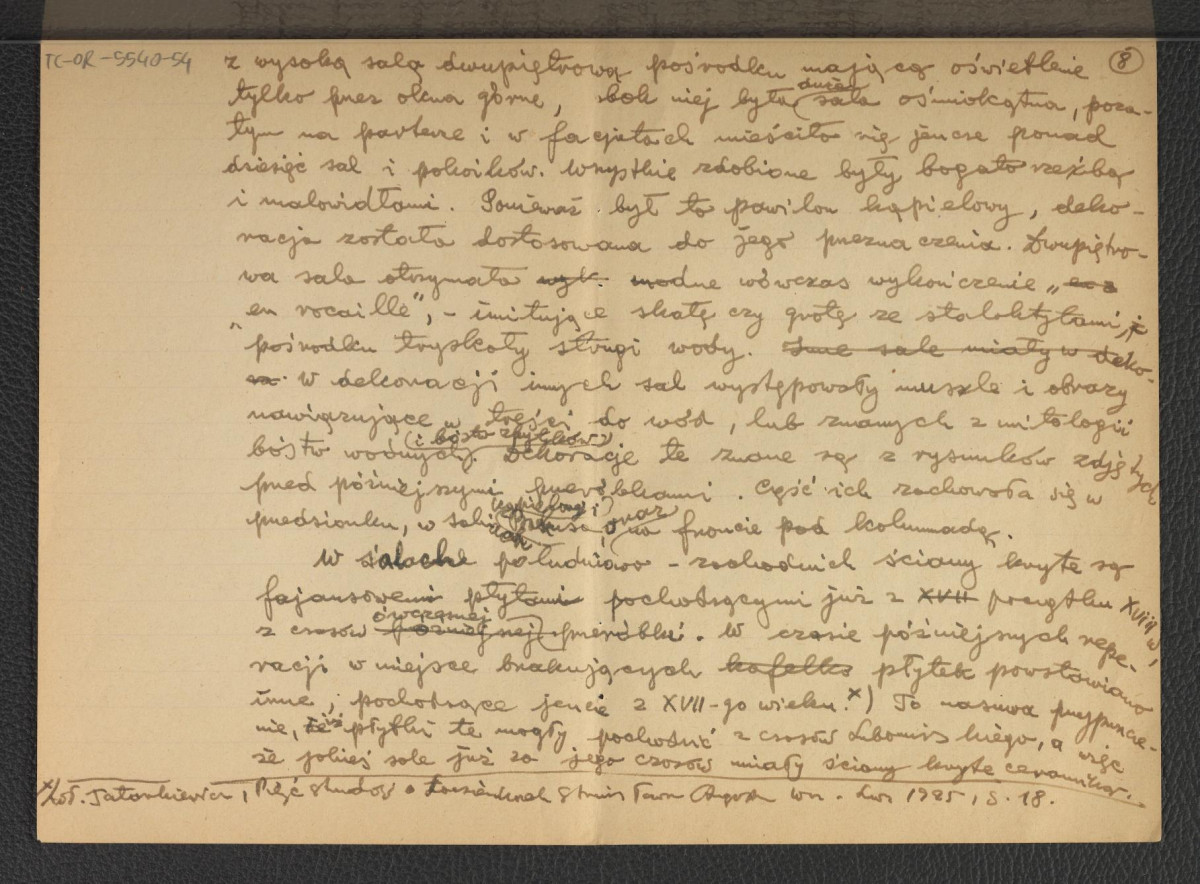 TC-OR-5540-54
8
z wysoką salą dwupiętrową pośrodku mającą oświetlenie
tylko przez okna górne, obok niej była duża sala ośmiokątna, poza-
tym na parterze i w facjatach mieściło się jeszcze ponad
dziesięć sal i pokoików. Wszystkie zdobione były bogato rzeźbą
i malowidłami. Ponieważ był to pawilon kąpielowy, deko-
racja została dostosowana do jego przeznaczenia. Dwupiętro-
wa sala otrzymała wyk. modne wówczas wykończenie „
"en rocaille", - imitujące skałę czy grotę ze stalaktytami, z
pośrodku tryskały strugi wody. Inne sale miały w deko-
W dekoracji innych sal występowały muszle i obrazy
nawiązujące w treści do wód, lub znanych z mitologii
bóstw wodnych (i bóstw). Dekoracje te znane są z rysunków zdjętych
przed późniejszymi przeróbkami. Część ich zachowała się w
przedsionku, w sali oraz na froncie pod kolumnadą.
W salach południowo-zachodnich ściany kryte są
fajansowemi płytami pochodzącymi już z XVII początku XVIII w,
z czasów późniejszej ówczesnej przeróbki. W czasie późniejszych repe-
racji w miejsce brakujących kafelko płytek powstawiano
inne, pochodzące jeszcze z XVII-go wieku.x) To nasuwa przypuszcze-
nie, że iż płytki te mogły pochodzić z czasów Lubomirskiego, a więc
że jakieś sale już za jego czasów miały ściany kryte ceramiką.
x) Wł. Tatarkiewicz, Pięć studiów o Łazienkach Stanisława Augusta Lw. 1925, s. 18.